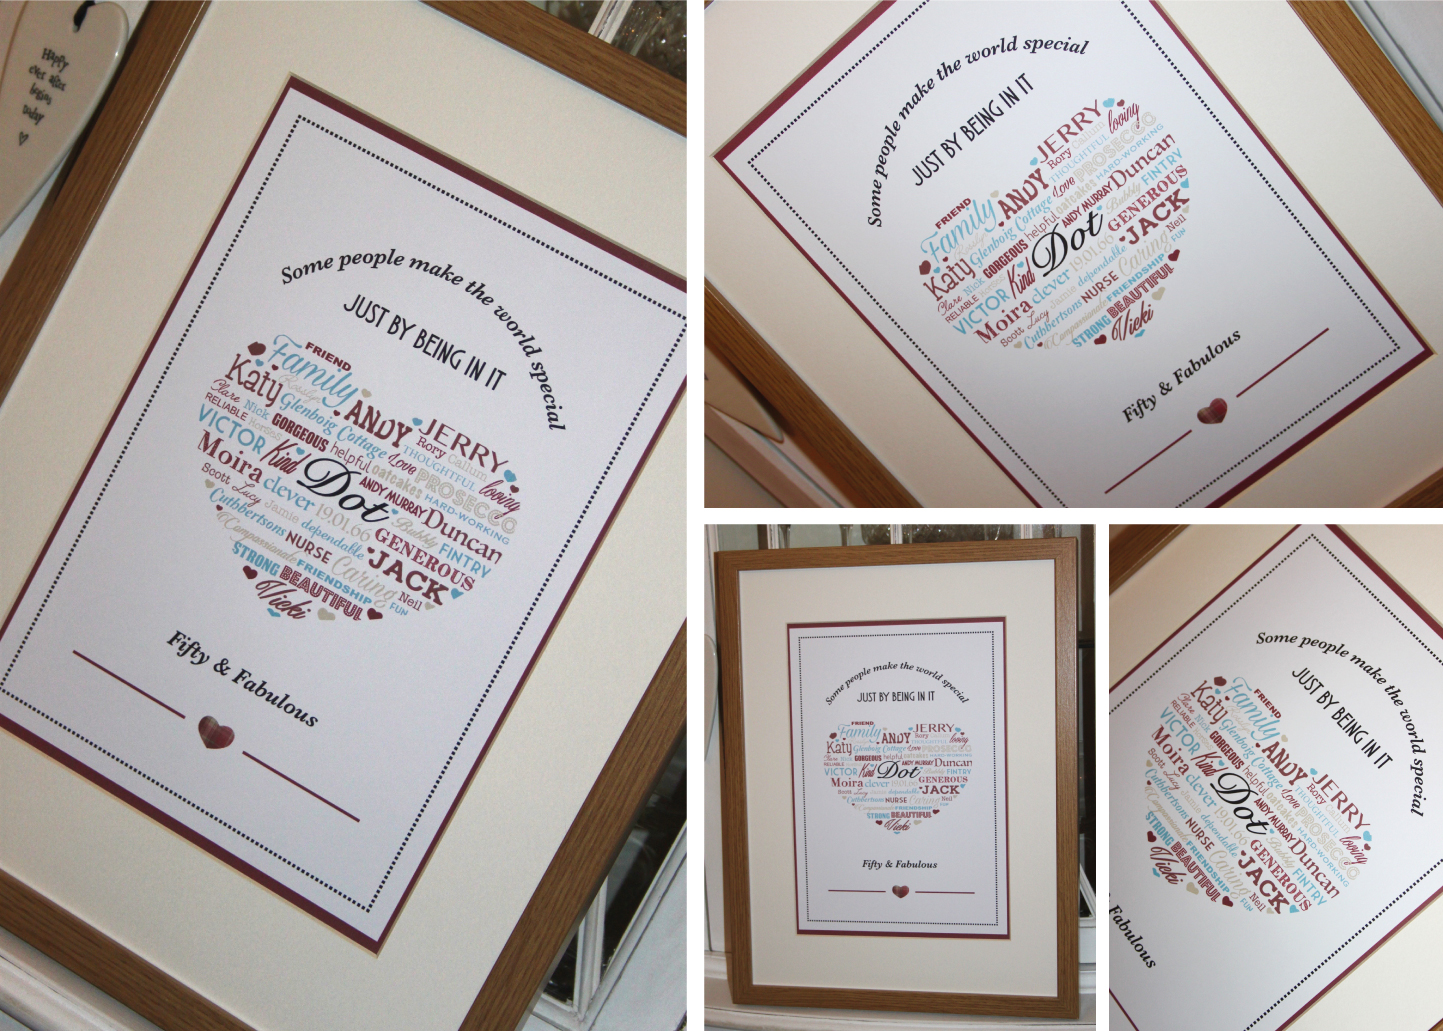 Happy
ever after
begins
today
Some people make the world special
JUST BY BEING IN IT
FRIEND
Family
ANDY
JERRY
Katy
Rory Callum
loving
Clare Nick Glenboig Cottage Love THOUGHTFUL
PROSECCO
RELIABLE GORGEOUS helpful oatcakes HARD-WORKING
VICTOR Kind Dot ANDY MURRAY Duncan
Moira clever 19.01.66 Bubbly FINTRY
Scott Lucy Jamie dependable GENEROUS
Cuthbertsons NURSE Caring JACK
Compassionate FRIENDSHIP Neil
STRONG BEAUTIFUL FUN
Vicki
Fifty & Fabulous
Some people make the world special
JUST BY BEING IN IT
JERRY
loving
Rory Callum
FRIEND
ANDY
THOUGHTFUL
PROSECCO
Family
Love
HARD-WORKING
Glenboig Cottage oatcakes
Duncan
Katy
GORGEOUS helpful ANDY MURRAY
Bubbly FINTRY
Clare Nick
Kind Dot
GENEROUS
RELIABLE
VICTOR clever 19.01.66
JACK
Moira
Jamie dependable
Caring Neil
Scott Lucy
NURSE
FUN
Cuthbertsons
FRIENDSHIP
Compassionate
BEAUTIFUL
STRONG
Vicki
Fifty & Fabulous
Some people make the world special
JUST BY BEING IN IT
FRIEND
Family ANDY JERRY
Rory
loving
Katy Glenboig Cottage Love PROSECCO
GORGEOUS helpful ANDY MURRAY Duncan
RELIABLE
VICTOR Kind Dot Bubbly FINTRY
Moira clever 19.01.66 GENEROUS
Scott Lucy Jamie dependable JACK
Cuthbertsons NURSE Caring Neil
Compassionate FRIENDSHIP FUN
STRONG BEAUTIFUL
Vicki
Fifty & Fabulous
Some people make the world special
JUST BY BEING IN IT
FRIEND
Family
Katy
ANDY
JERRY
Clare Nick Glenboig Cottage
Rory Callum
loving
RELIABLE
GORGEOUS helpful oatcakes Love THOUGHTFUL PROSECCO
VICTOR Kind
ANDY MURRAY HARD-WORKING
Moira clever Dot
Duncan
Scott Lucy 19.01.66 Bubbly FINTRY
Jamie dependable GENEROUS
Cuthbertsons NURSE JACK
Compassionate FRIENDSHIP Caring Neil
STRONG BEAUTIFUL FUN
Vicki
Fabulous